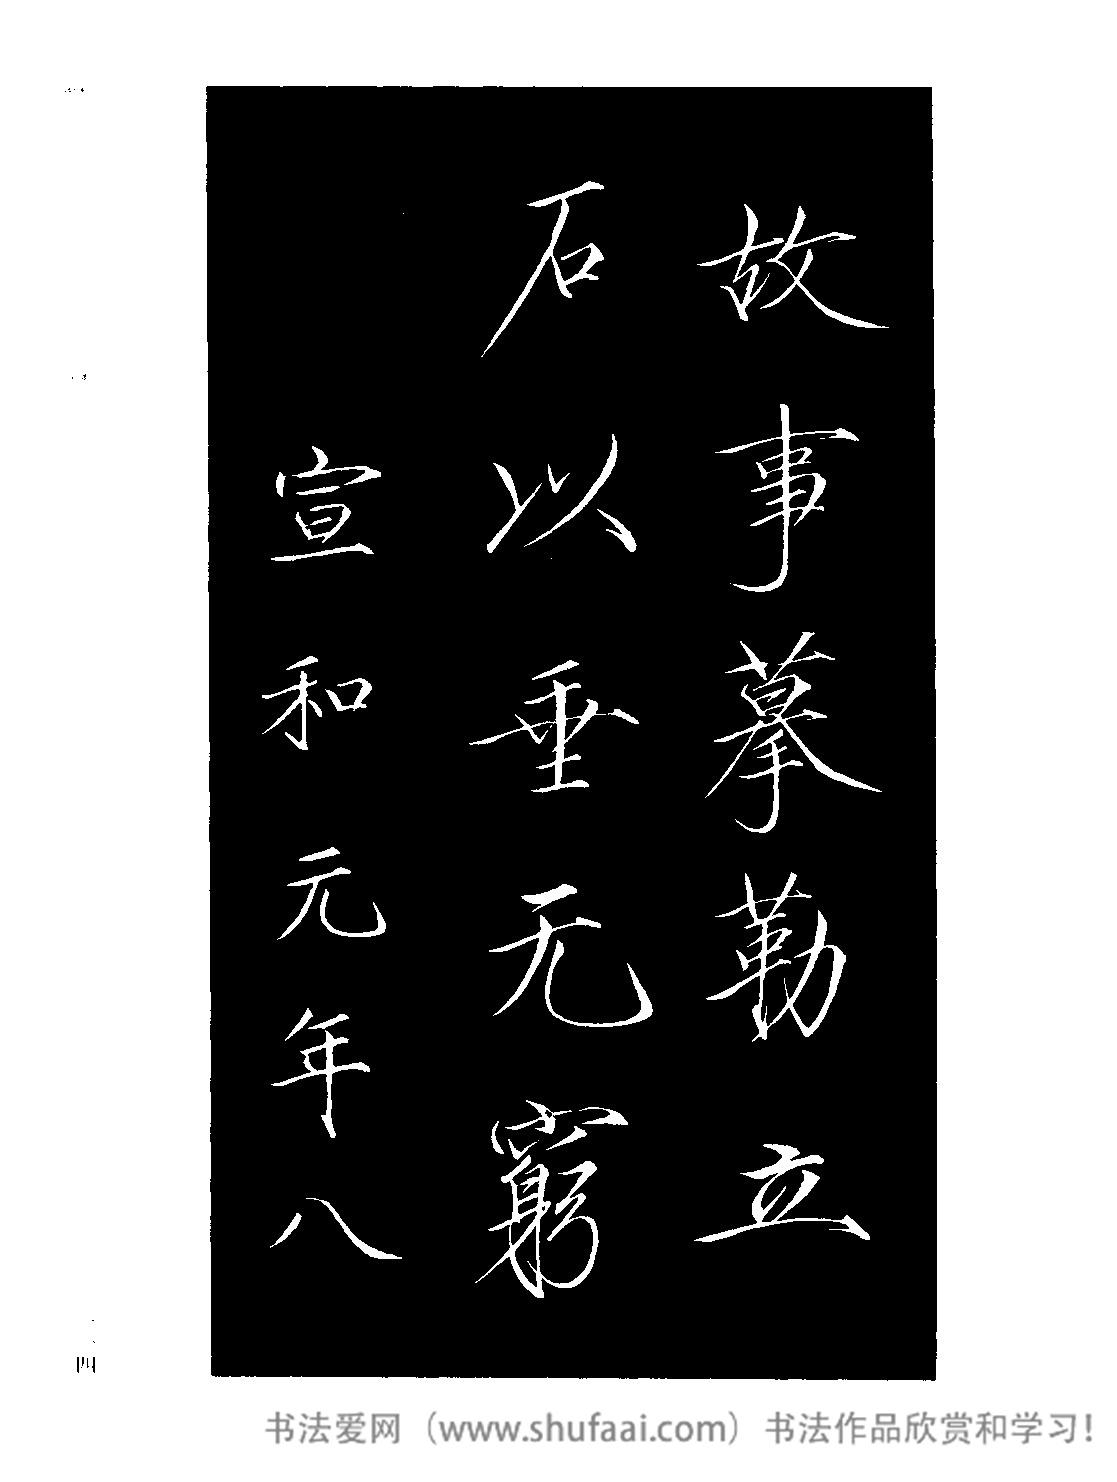 故事摹勒立
石以垂无窮
宣和元年八
四
书法爱网（www.shufaai.com）书法作品欣赏和学习！